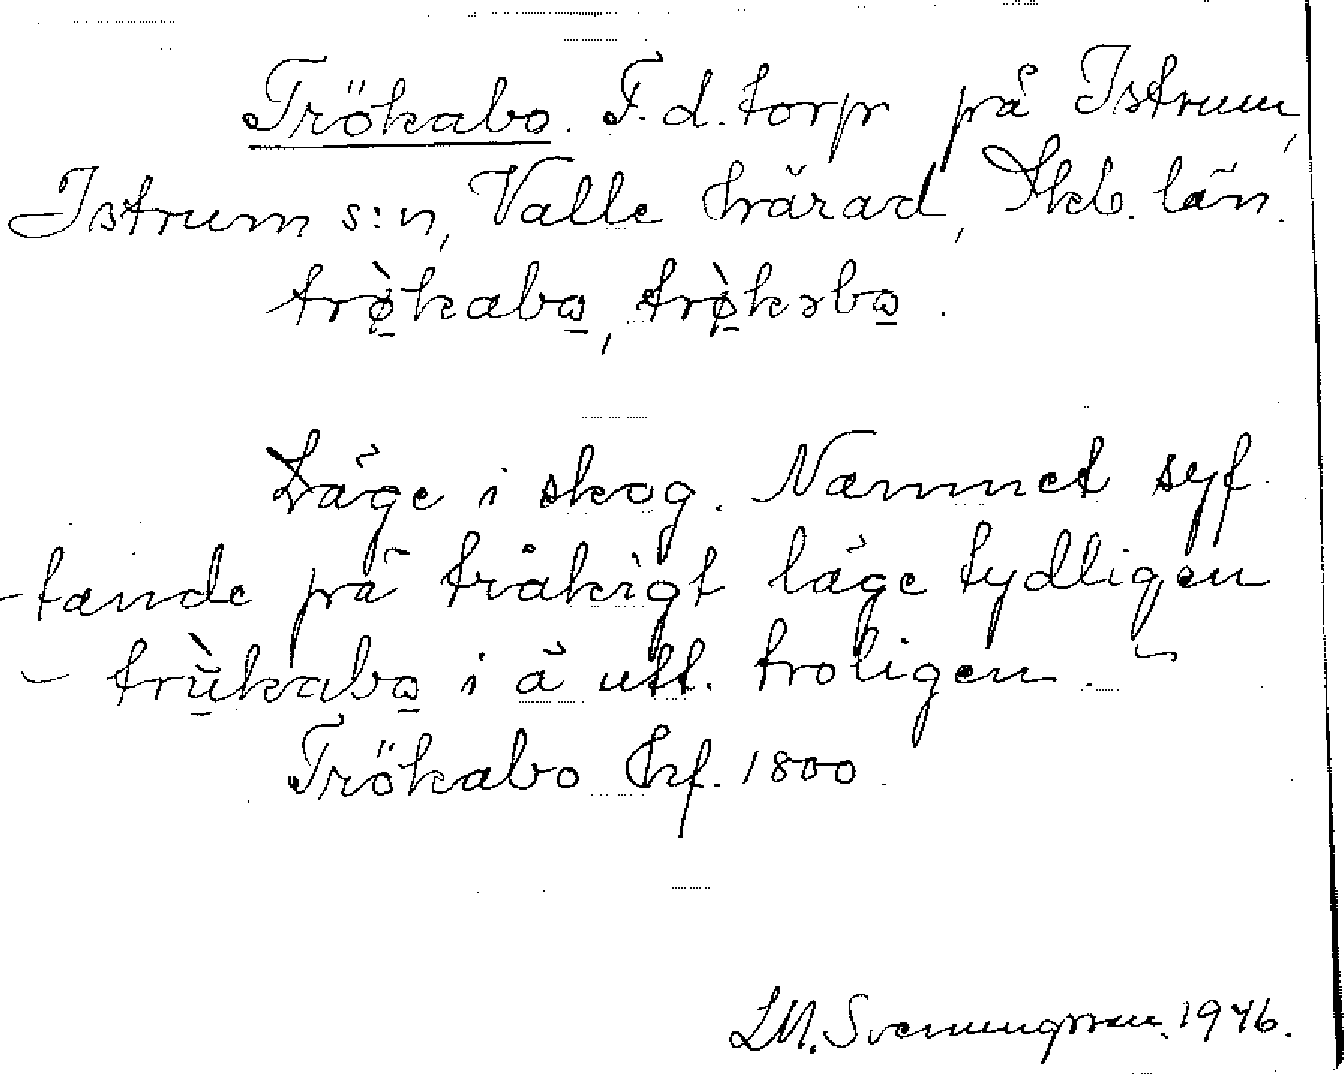 Trökabo. F.d. torp på Istrum,
Istrum s:n, Valle härad, Skb. län.
trø̀kabɷ, trø̀kəbɷ.
Läge i skog. Namnet syf-
-tande på tråkigt läge tydligen
- trùkabɷ i ä utt. troligen. -
Trökabo Hf. 1800
L.M. Svenungsson. 1946.